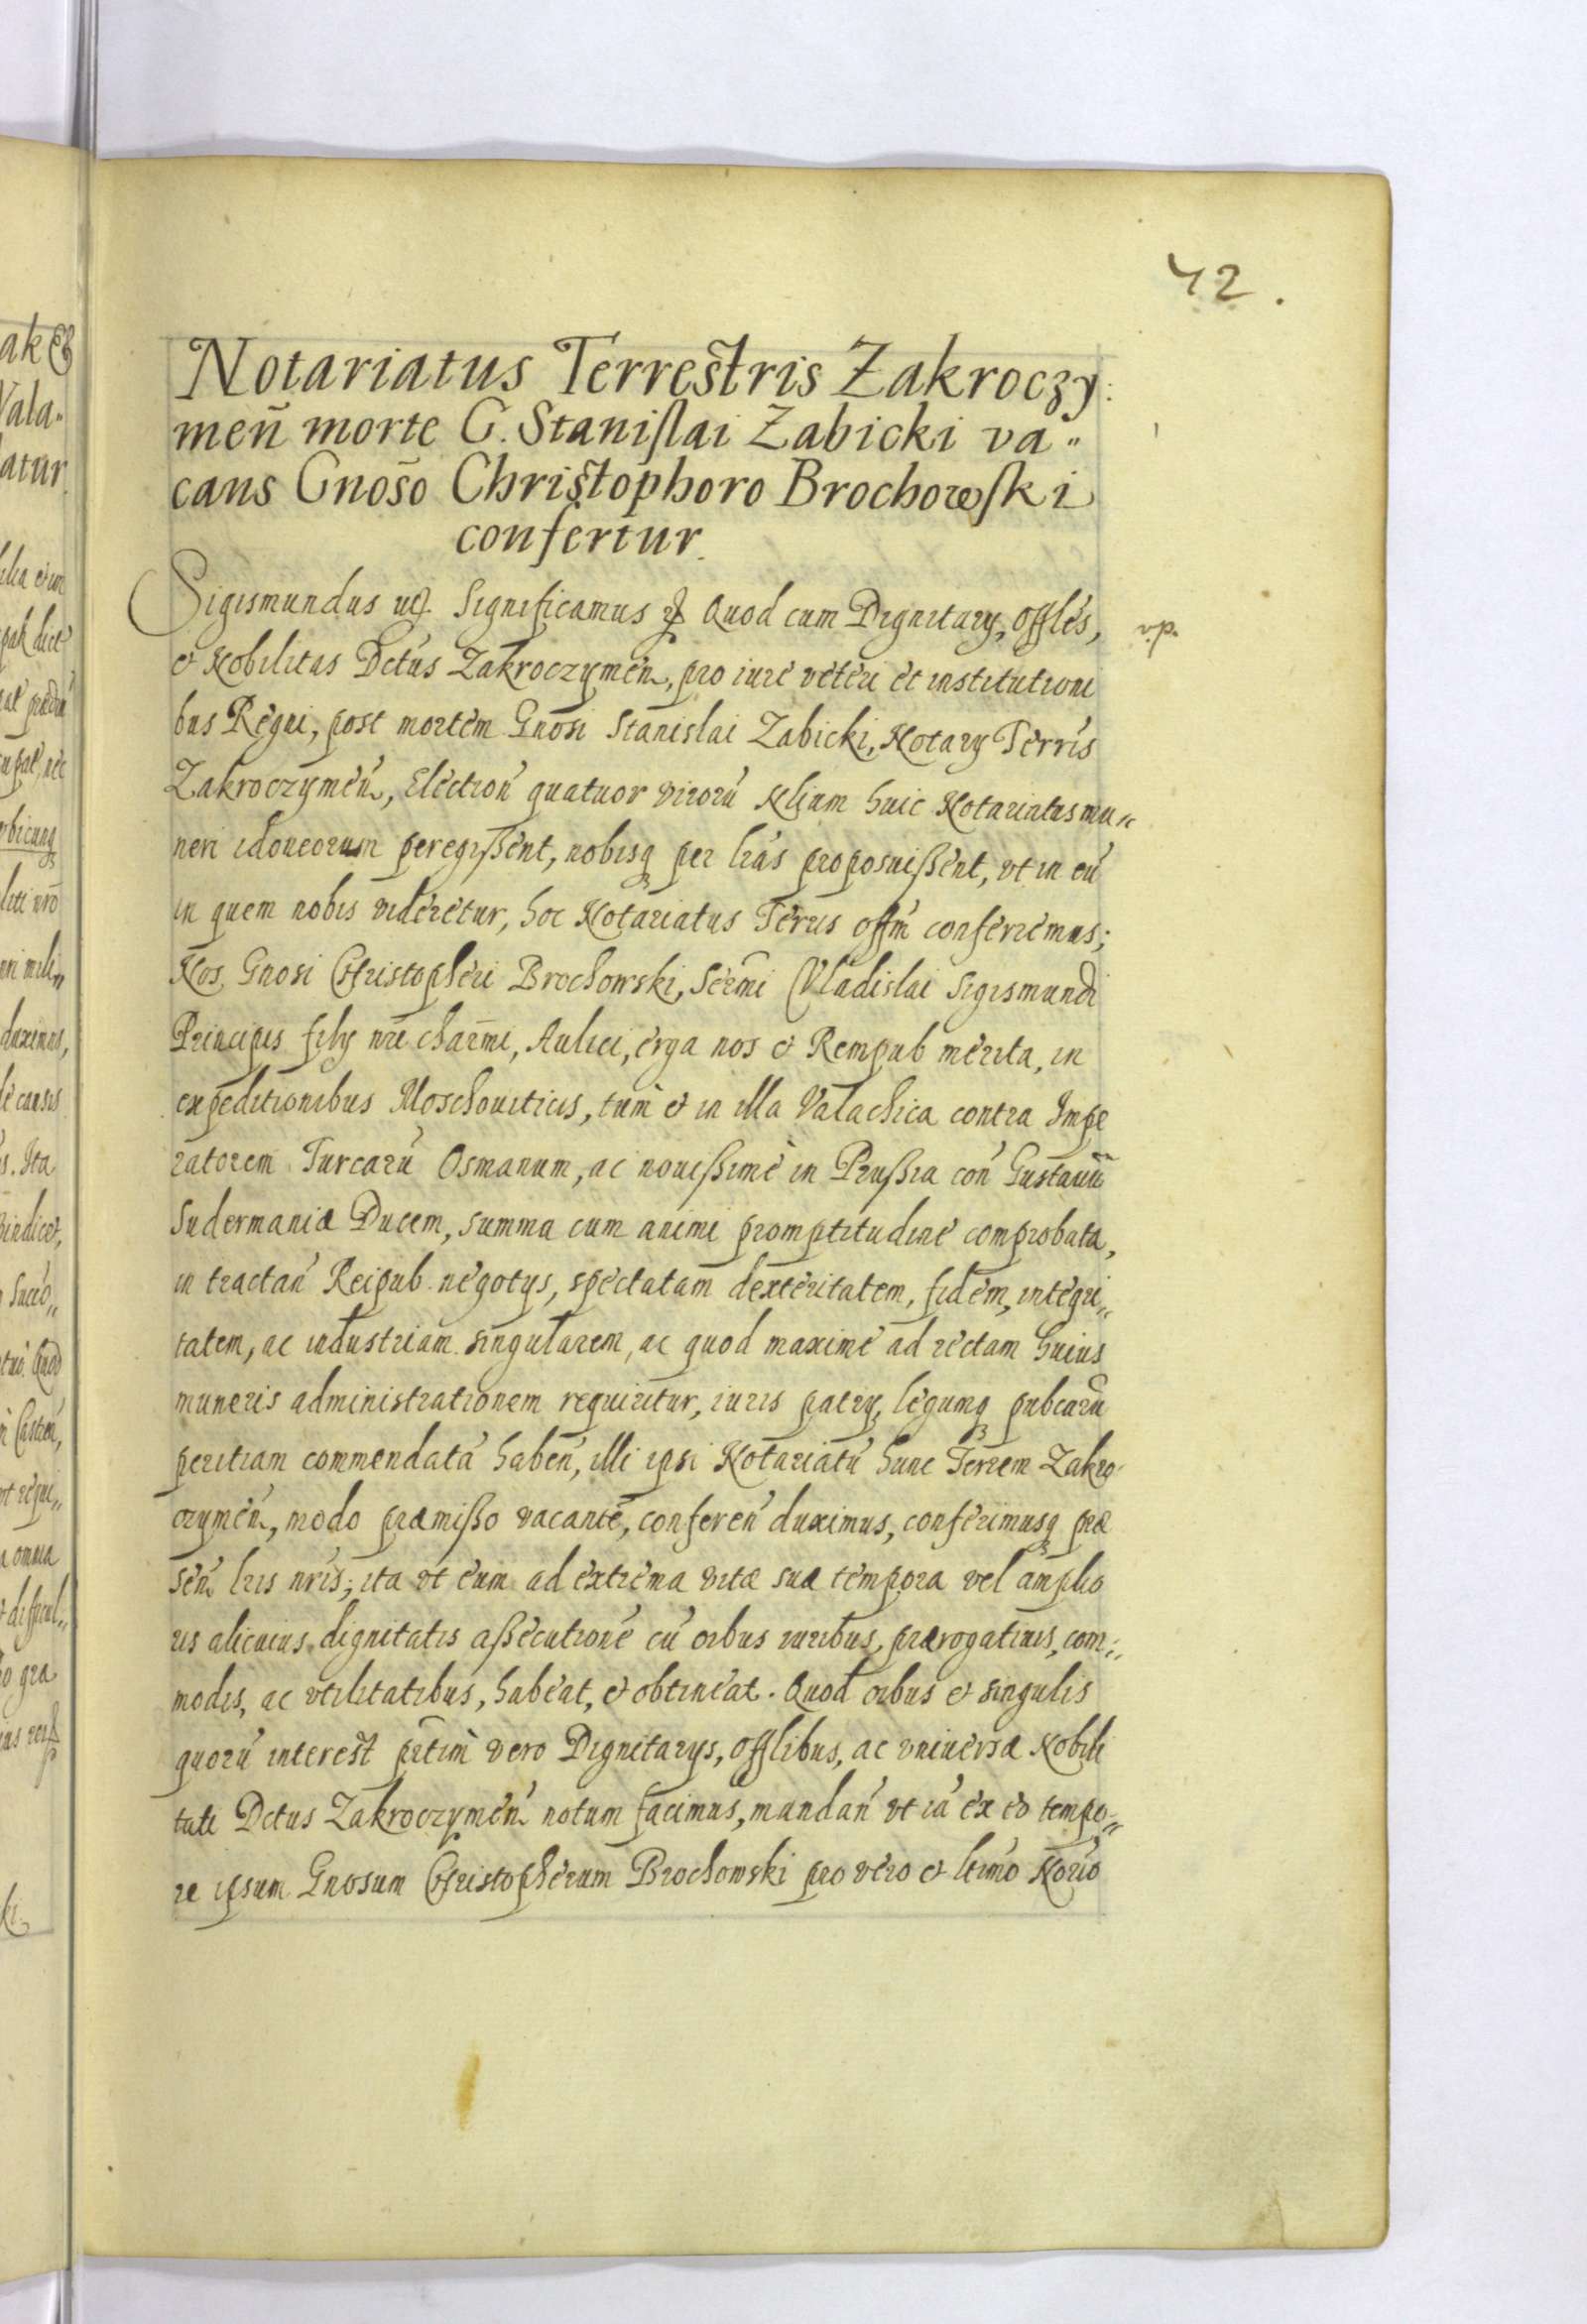 42.
Notariatus Terrestris Zakroczy:
meñ morte G. Stanislai Zabicki va„
cans Gnoso Christophoro Brochowski
confertur.
Sigismundus Significamus Quod cum Dignitarij, Offles,
v.p.
et Nobilitas Dctus Zakroczymeñ, pro iure veteri et institutioni
bus Regni, post mortem Gnosi Stanislai Zabicki, Notarij Terris
Zakroczymeñ, Election quatuor virorũ huic Notariatus mu„
neri idoneorum peregissent, nobisq per lras proposuissent, vt in eũ
in quem nobis videretur, hoc Notariatus Terris offm conferremus;
Nos Gnosi Christopheri Brochowski, Sermi Vladislai Sigismundi
Principis filij nri charmi, Aulici, erga nos et Rempub merita, in
expeditionibus Moschouiticis, tum et in illa Valachica contra Impe
ratorem Turcarũ Osmanum, ac nouissime in Prussia con Gustauũ
Sudermaniæ Ducem, summa cum animi promptitudine comprobata,
in tractan Reipub. negotijs, spectatam dexteritatem, fidem, integri„
tatem, ac industriam singularem, ac quod maxime ad rectam huius
muneris administrationem requiritur, iuris patrij, legumq pubcarũ
peritiam commendatã haben, illi ipsi Notariatũ hunc Terrem Zakro
czymeñ, modo præmisso vacante, conferen duximus, conferimusq præ
sen lris nris; ita vt eum ad extrema vitæ suæ tempora vel amplio
ris alicuius dignitatis assecutione cũ oibus iuribus, prærogatiuis, com„
modis, ac vtilitatibus, habeat, et obtineat. Quod oibus et singulis
quorũ interest prtim vero Dignitarijs, Offlibus, ac vniuersæ Nobili
tati Dctus Zakroczymeñ notum facimus, mandan vt iã ex eo tempo„
re ipsum Gnosum Christopherum Brochowski pro vero et ltimo Norio